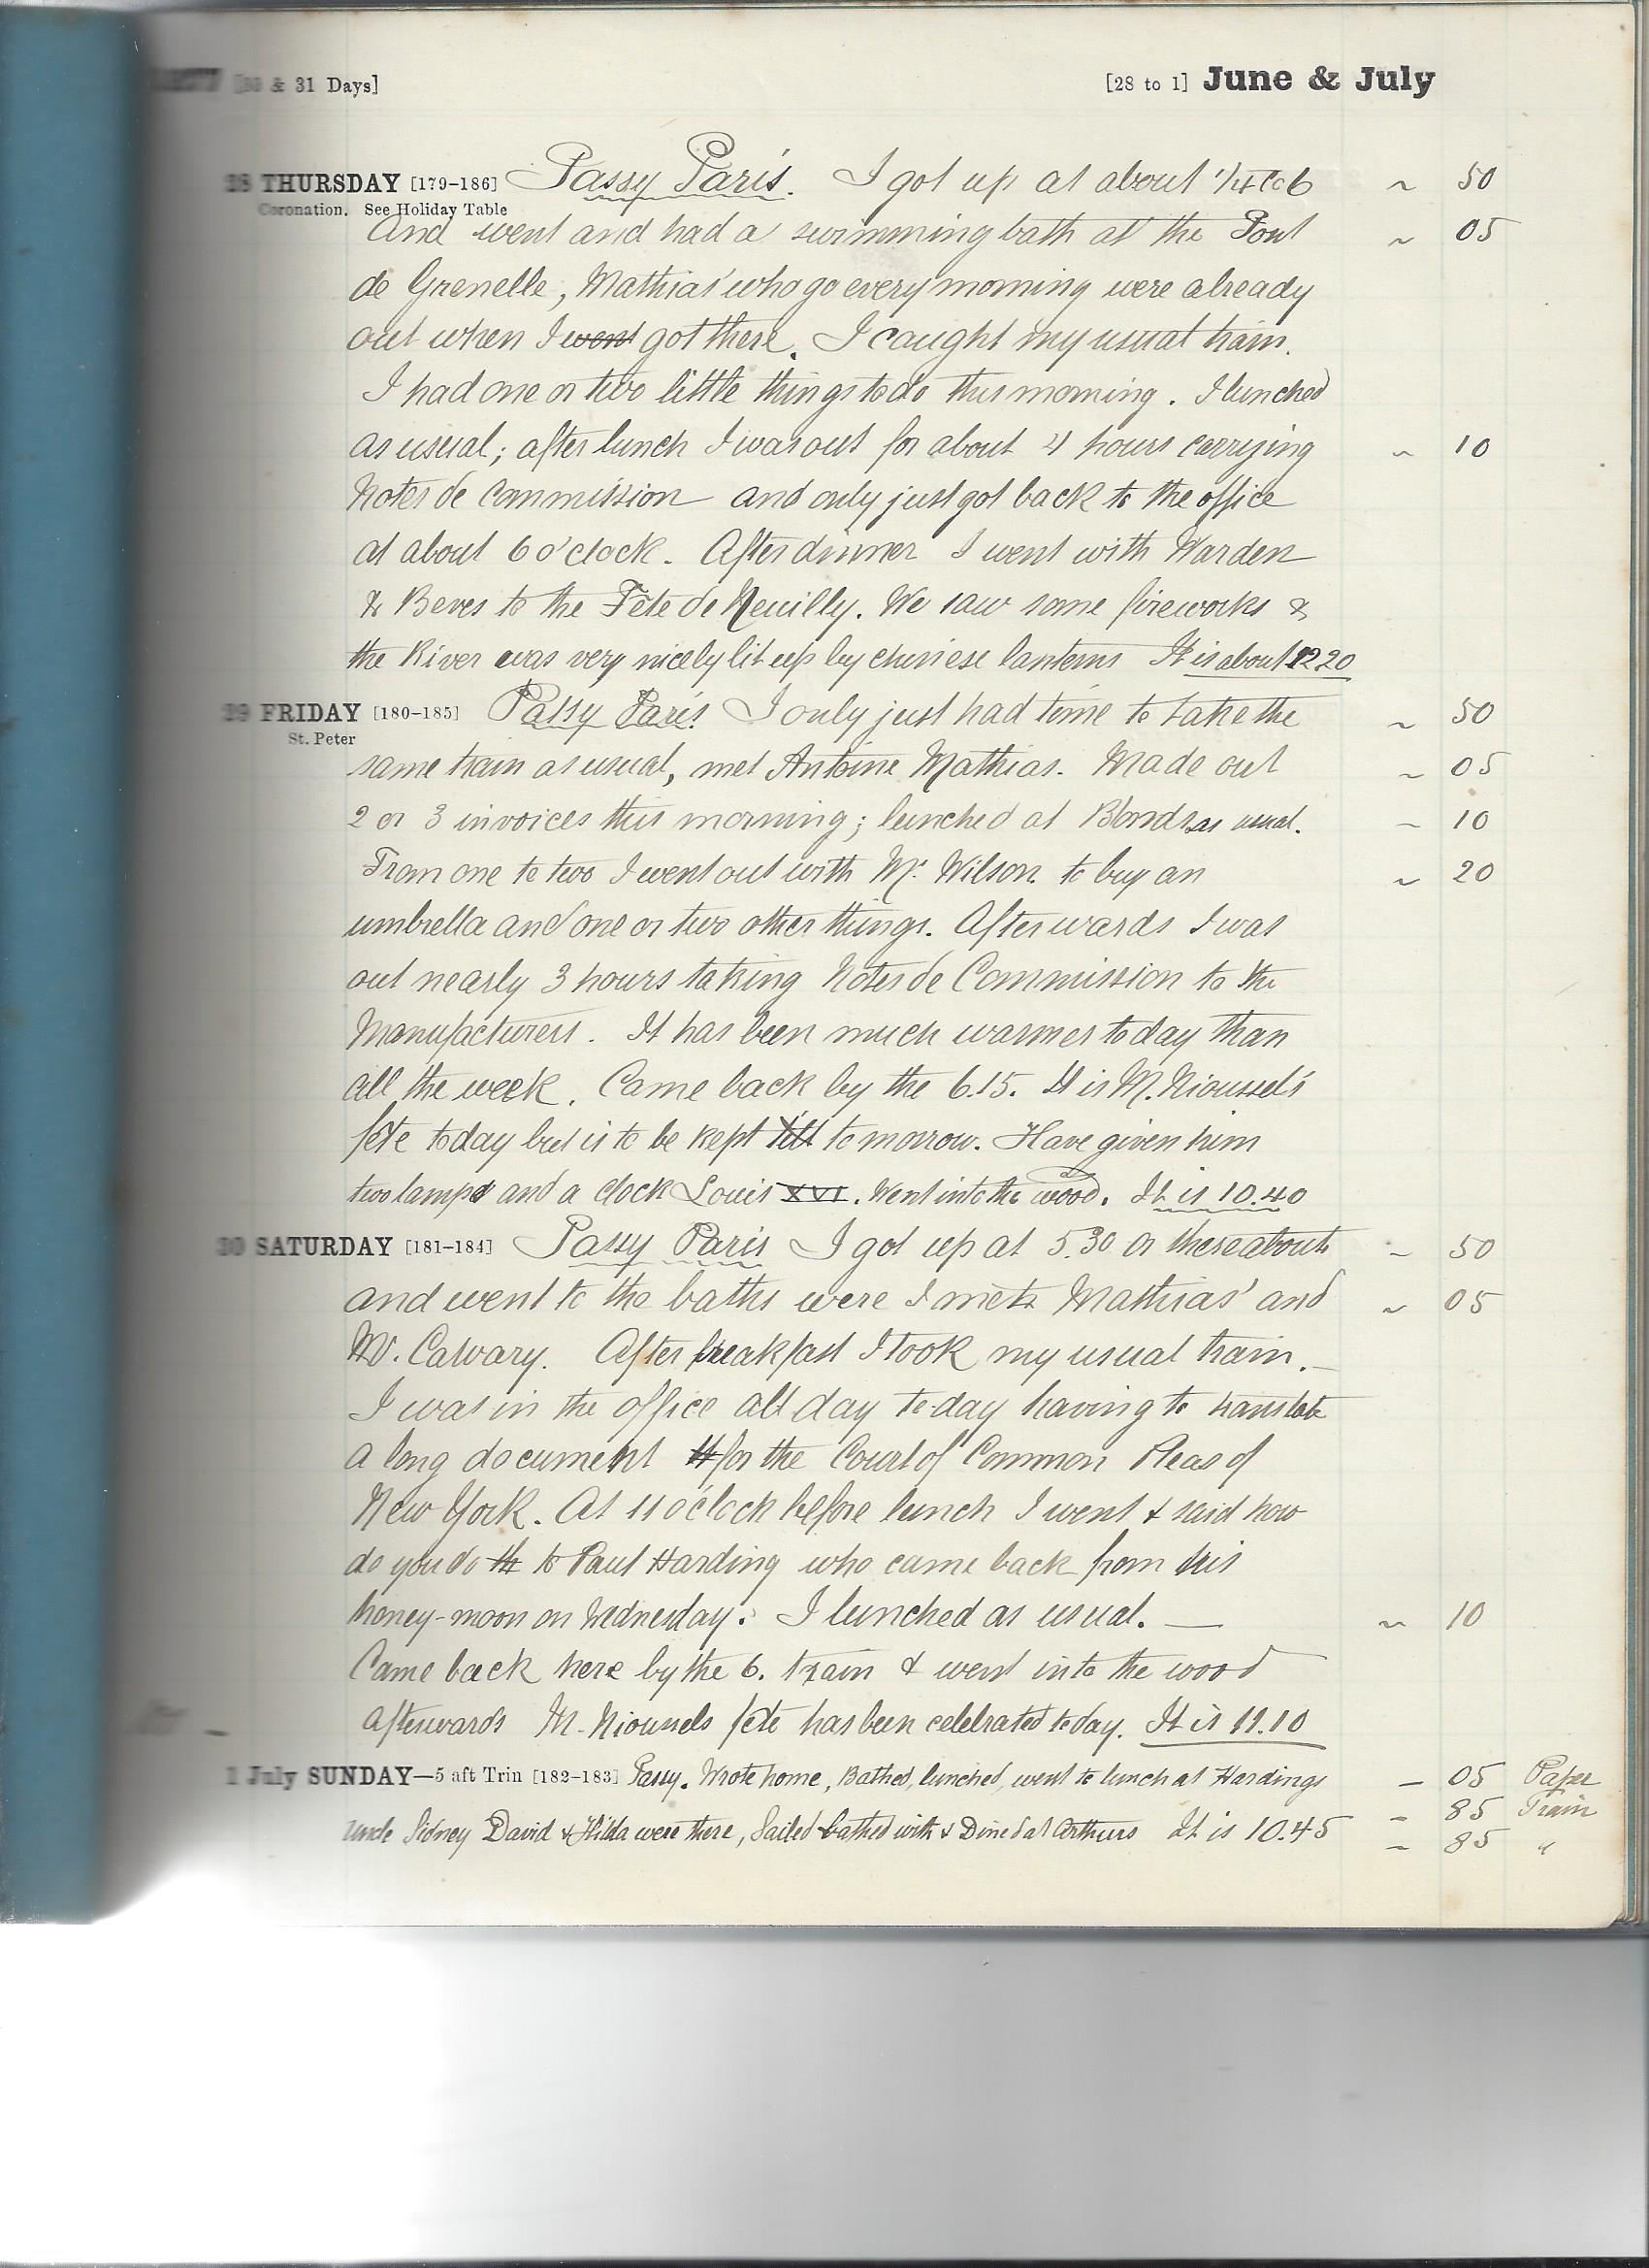 [30 & 31 Days] [28 to 1] June & July
28 THURSDAY [179-186] Passy Paris. I got up at about 1/4 to 6 ~ 50
Coronation. See Holiday Table
And went and had a swimming bath at the Pont ~ 05
de Grenelle, Mathias' who go every morning were already
out when I went got there. I caught my usual train.
I had one or two little things to do this morning. I lunched
as usual; after lunch I was out for about 4 hours carrying ~ 10
Notes de Commission and only just got back to the office
at about 6 o'clock. After dinner I went with Warden
& Beves to the Fête de Neuilly. We saw some fireworks &
the River was very nicely lit up by chinese lanterns It is about 12 20
29 FRIDAY [180-185] Passy Paris I only just had time to take the ~ 50
St. Peter
same train as usual, met Antoine Mathias. Made out ~ 05
2 or 3 invoices this morning; lunched at Blonds as usual. ~ 10
From one to two I went out with Mr. Wilson to buy an ~ 20
umbrella and one or two other things. Afterwards I was
out nearly 3 hours taking Notes de Commission to the
Manufacturers. It has been much warmer today than
all the week. Came back by the 6.15. It is M. Nioussel's
fête today but is to be kept till tomorrow. Have given him
two lamps and a clock Louis XVI. Went into the wood. It is 10.40
30 SATURDAY [181-184] Passy Paris I got up at 5.30 or thereabouts ~ 50
and went to the baths were I met Mathias' and ~ 05
Mr. Calvary. After breakfast I took my usual train.
I was in the office all day to-day having to translate
a long document for the Court of Common Pleas of
New York. At 11 o'clock before lunch I went & said how
do you do th to Paul Harding who came back from his
honey-moon on Wednesday. I lunched as usual. — ~ 10
Came back here by the 6. train & went into the wood
afterwards M. Nioussels fête has been celebrated today. It is 11.10
1 July SUNDAY—5 aft Trin [182-183] Passy. Wrote home, Bathed, lunched, went to lunch at Hardings – 05 Paper
– 85 Train
Uncle Sidney David & Hilda were there, Sailed bathed with & Dined at Arthurs It is 10.45
– 85 "